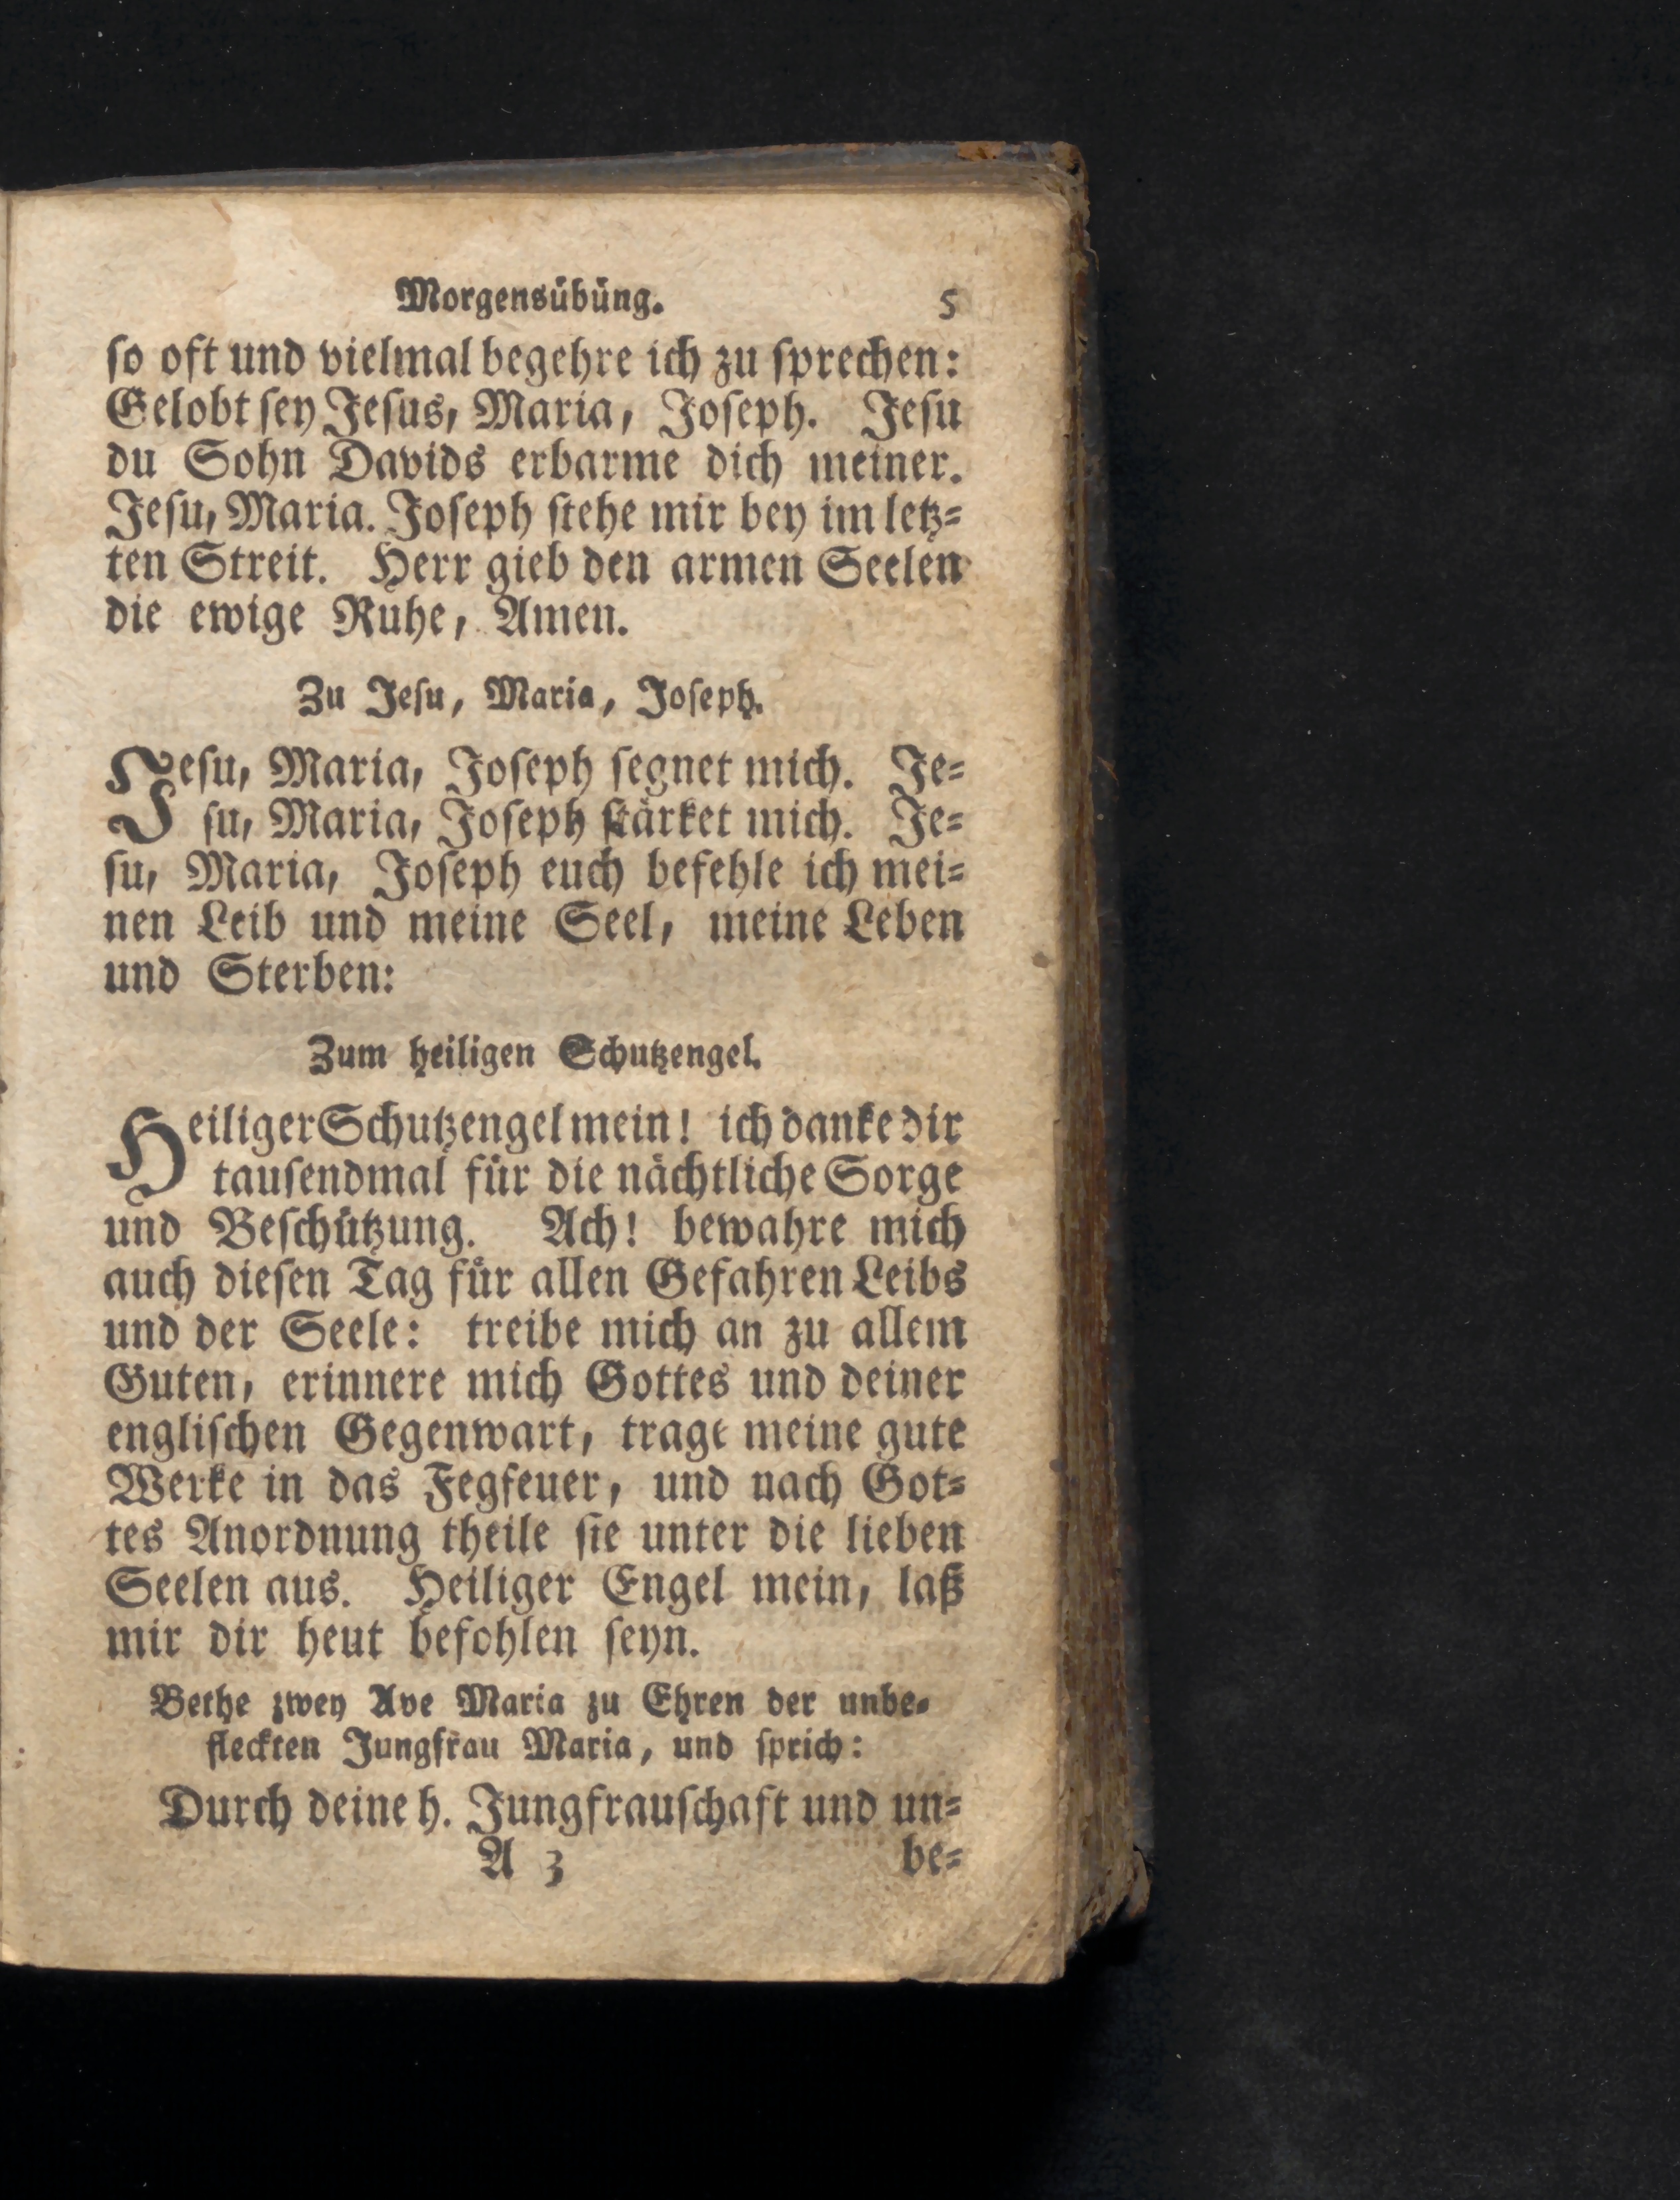 Morgensübüng. 5
so oft und vielmal begehre ich zu sprechen:
Gelobt sey Jesus, Maria, Joseph. Jesu
du Sohn Davids erbarme dich meiner.
Jesu, Maria. Joseph stehe mir bey im letz=
ten Streit. Herr gieb den armen Seelen
die ewige Ruhe, Amen.
Zu Jesu, Maria, Joseph.
Jesu, Maria, Joseph segnet mich. Je=
su, Maria, Joseph stärket mich. Je=
su, Maria, Joseph euch befehle ich mei=
nen Leib und meine Seel, meine Leben
und Sterben:
Zum heiligen Schutzengel.
Heiliger Schutzengel mein! ich danke dir
tausendmal für die nächtliche Sorge
und Beschützung. Ach! bewahre mich
auch diesen Tag für allen Gefahren Leibs
und der Seele: treibe mich an zu allem
Guten, erinnere mich Gottes und deiner
englischen Gegenwart, trage meine gute
Werke in das Fegfeuer, und nach Got=
tes Anordnung theile sie unter die lieben
Seelen aus. Heiliger Engel mein, laß
mir dir heut befohlen seyn.
Bethe zwey Ave Maria zu Ehren der unbe=
fleckten Jungfrau Maria, und sprich:
Durch deine h. Jungfrauschaft und un=
A 3 be=